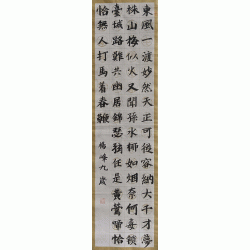 東風一渡妙然天正可從容納大千才夢
山梅似火又聞水柳如烟奈何春鎖
臺城路難共幽居錦瑟任是黃鶯啼恰
恰無人打馬着春鞭
九歲